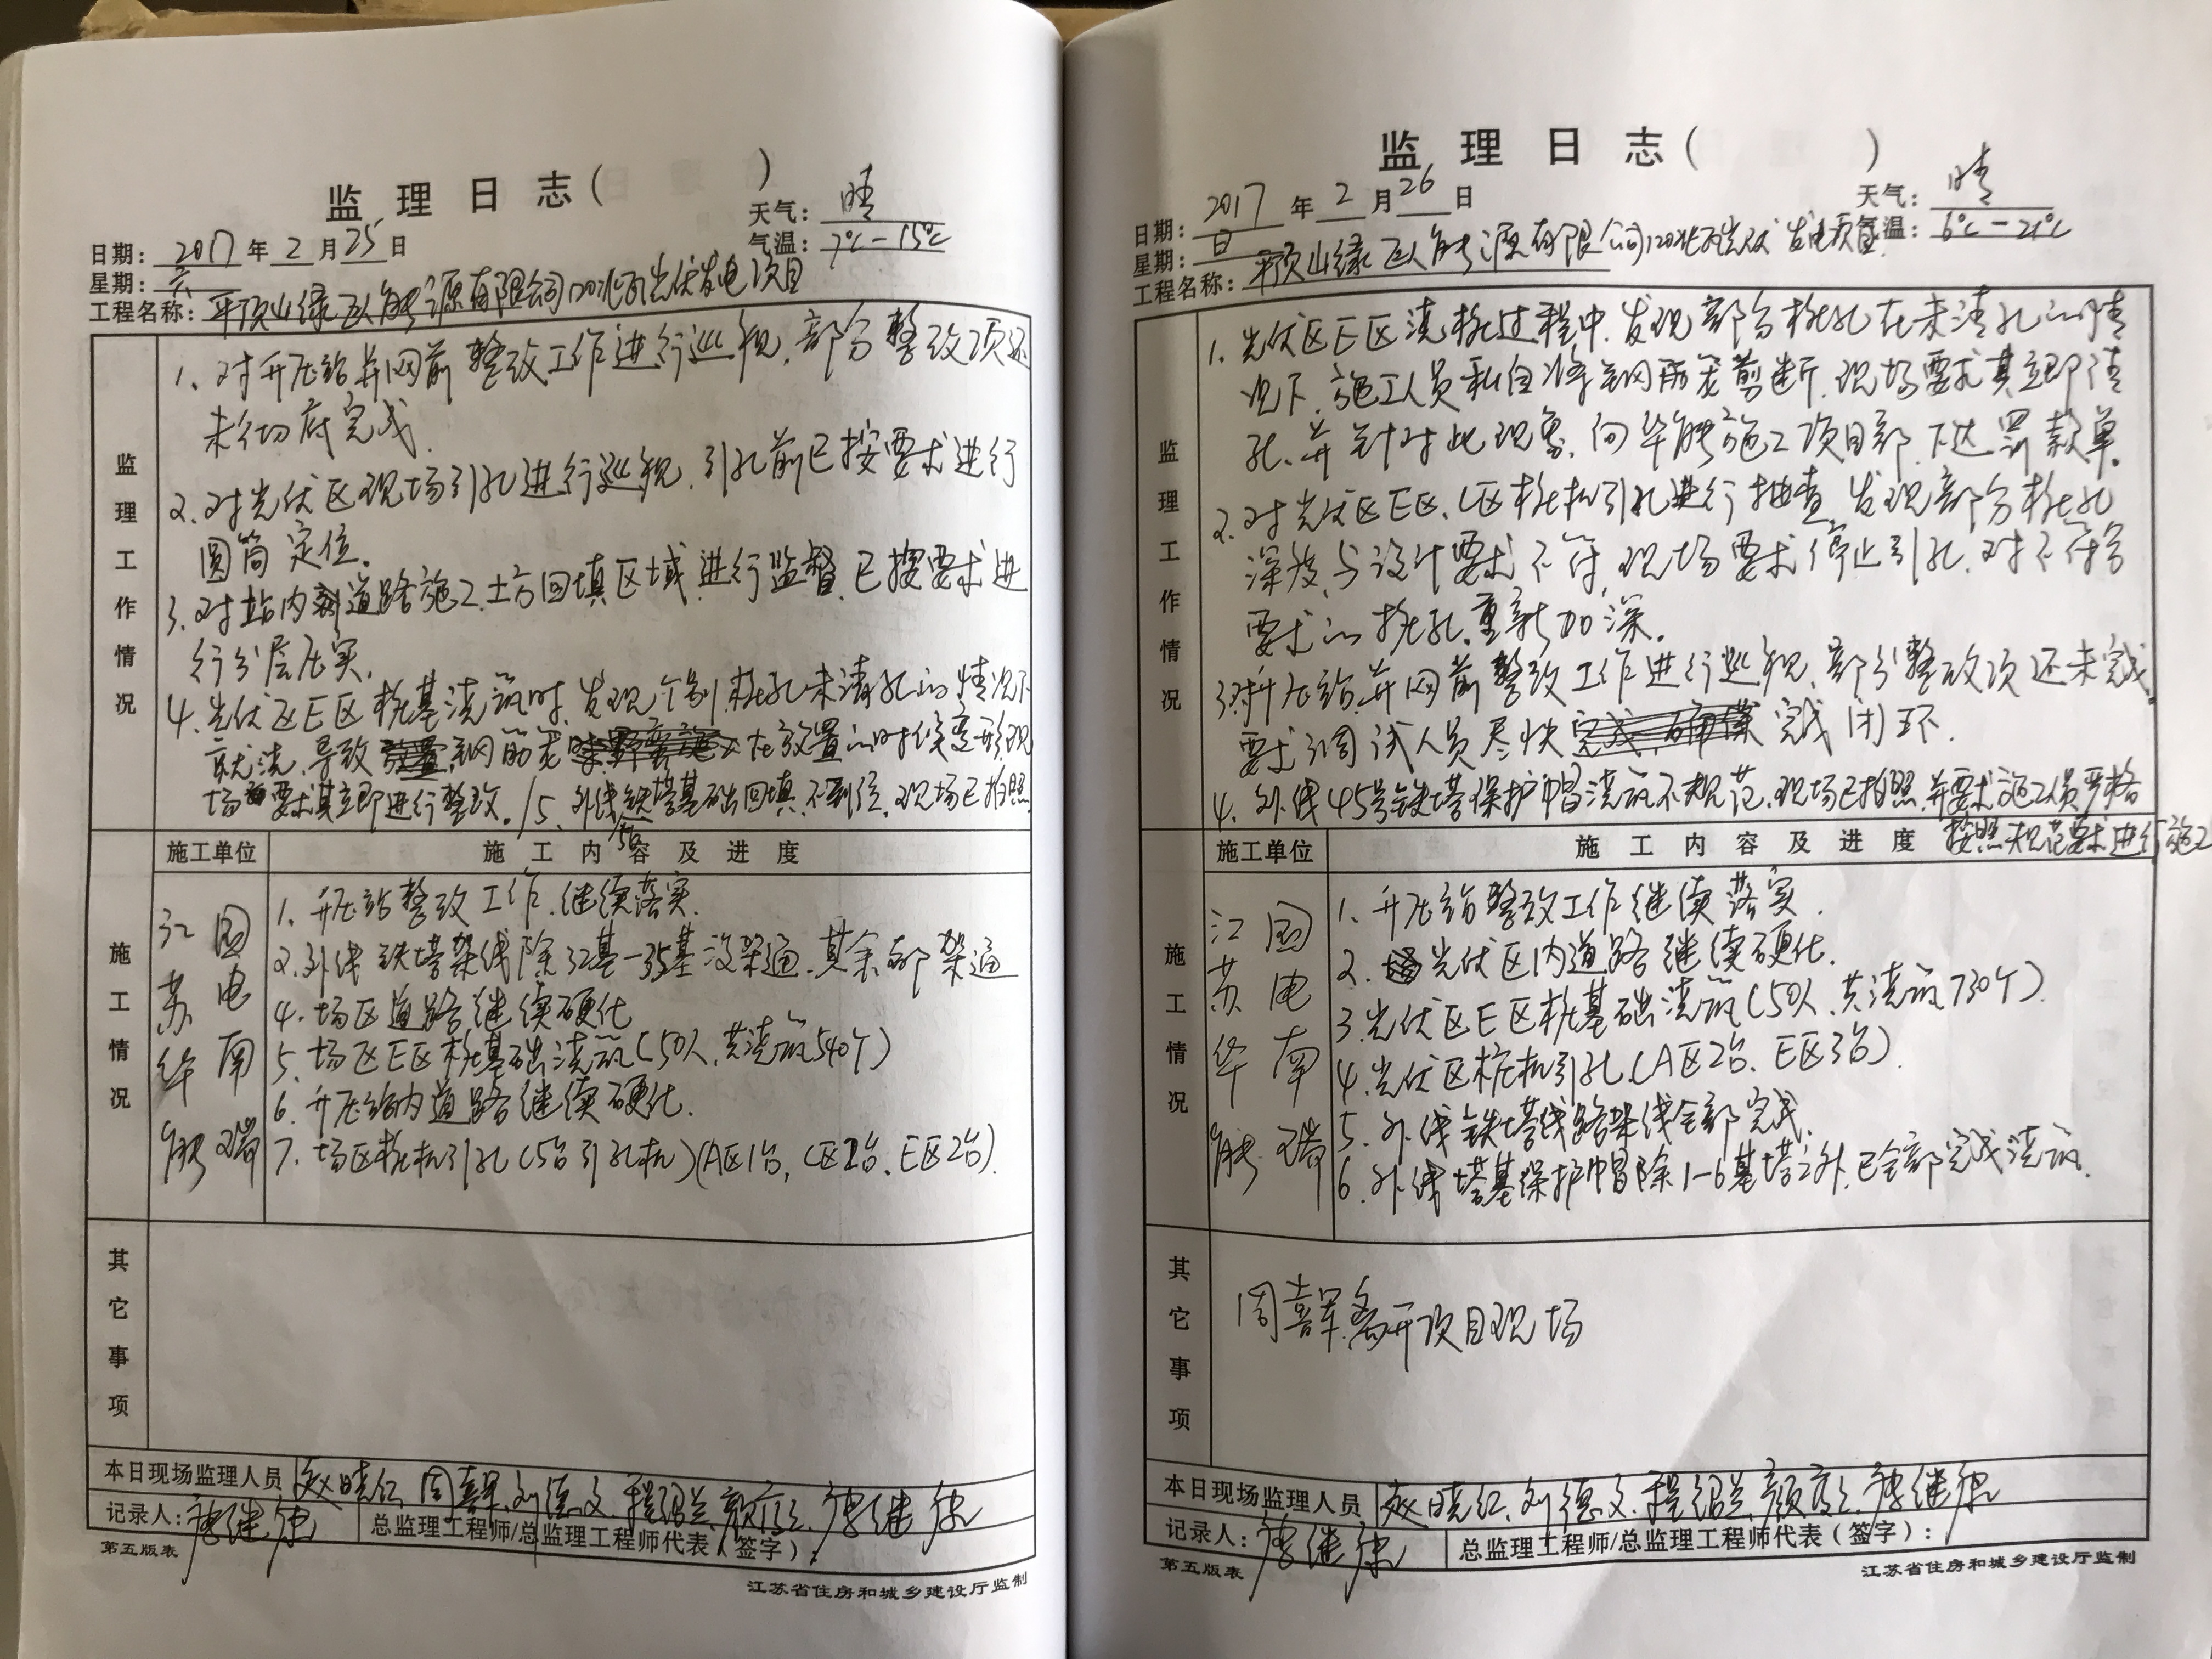 监理日志( )
天气: 晴
日期: 2017 年 2 月 25 日
气温: 7℃-15℃
星期: 六
工程名称: 平顶山绿巨人能源有限公司120兆瓦光伏发电项目
监理工作情况
1、对升压站并网前整改工作进行巡视,部分整改项还
未彻底完成.
2、对光伏区现场引孔进行巡视,引孔前已按要求进行
圆筒定位。
3、对站内道路施工,土方回填区域,进行监督,已按要求进
行分层压实.
4、光伏区E区桩基浇筑时,发现个别桩孔未清孔的情况下
就浇,导致钢筋笼在放置的时候变形,现
场要求其立即进行整改. /5、外线铁塔基础回填不到位,现场已拍照.
施工单位 施工内容及进度
施工情况
江苏华能
国电南瑞
1、升压站整改工作,继续落实.
2、外线铁塔架线除32基-35基没架通,其余都架通
4、场区道路继续硬化
5、场区E区桩基础浇筑(50人,共浇筑540个)
6、升压站内道路继续硬化.
7、场区桩机引孔(5台引孔机)(A区1台,C区2台、E区2台).
其它事项
本日现场监理人员 赵晓红、周喜军、刘德文、程绍兰、唐继
记录人: 唐继
总监理工程师/总监理工程师代表(签字):
第五版表
江苏省住房和城乡建设厅监制
监理日志( )
天气: 晴
日期: 2017 年 2 月 26 日
气温: 6℃-21℃
星期: 日
工程名称: 平顶山绿巨人能源有限公司120兆瓦光伏发电项目
监理工作情况
1、光伏区E区浇桩过程中,发现部分桩孔在未清孔的情
况下,施工人员私自将钢筋笼剪断,现场要求其立即清
孔,并针对此现象,向华能施工项目部,下达罚款单。
2、对光伏区E区、C区桩机引孔进行抽查,发现部分桩孔
深度与设计要求不符,现场要求停止引孔,对不符合
要求的桩孔,重新加深。
3、对升压站并网前整改工作进行巡视,部分整改项还未完成,
要求调试人员尽快完成闭环.
4、外线45号铁塔保护帽浇筑不规范,现场已拍照,并要求施工人员严格
按照规范要求进行施工
施工单位 施工内容及进度
施工情况
江苏华能
国电南瑞
1、升压站整改工作继续落实.
2、光伏区内道路继续硬化.
3、光伏区E区桩基础浇筑(50人,共浇筑730个).
4、光伏区桩机引孔(A区2台、E区3台).
5、外线铁塔线路架线全部完成.
6、外线塔基保护帽除1-6基塔之外,已全部完成浇筑.
其它事项
周喜军离开项目现场
本日现场监理人员 赵晓红、刘德文、程绍兰、唐继
记录人: 唐继
总监理工程师/总监理工程师代表(签字):
第五版表
江苏省住房和城乡建设厅监制